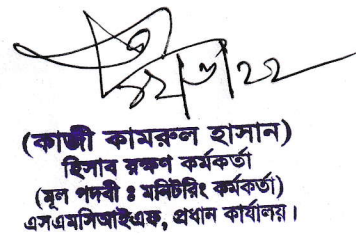 (কাজী কামরুল হাসান)
হিসাব রক্ষণ কর্মকর্তা
(মূল পদবী ঃ মনিটরিং কর্মকর্তা)
এসএমসিআইএফ, প্রধান কার্যালয়।